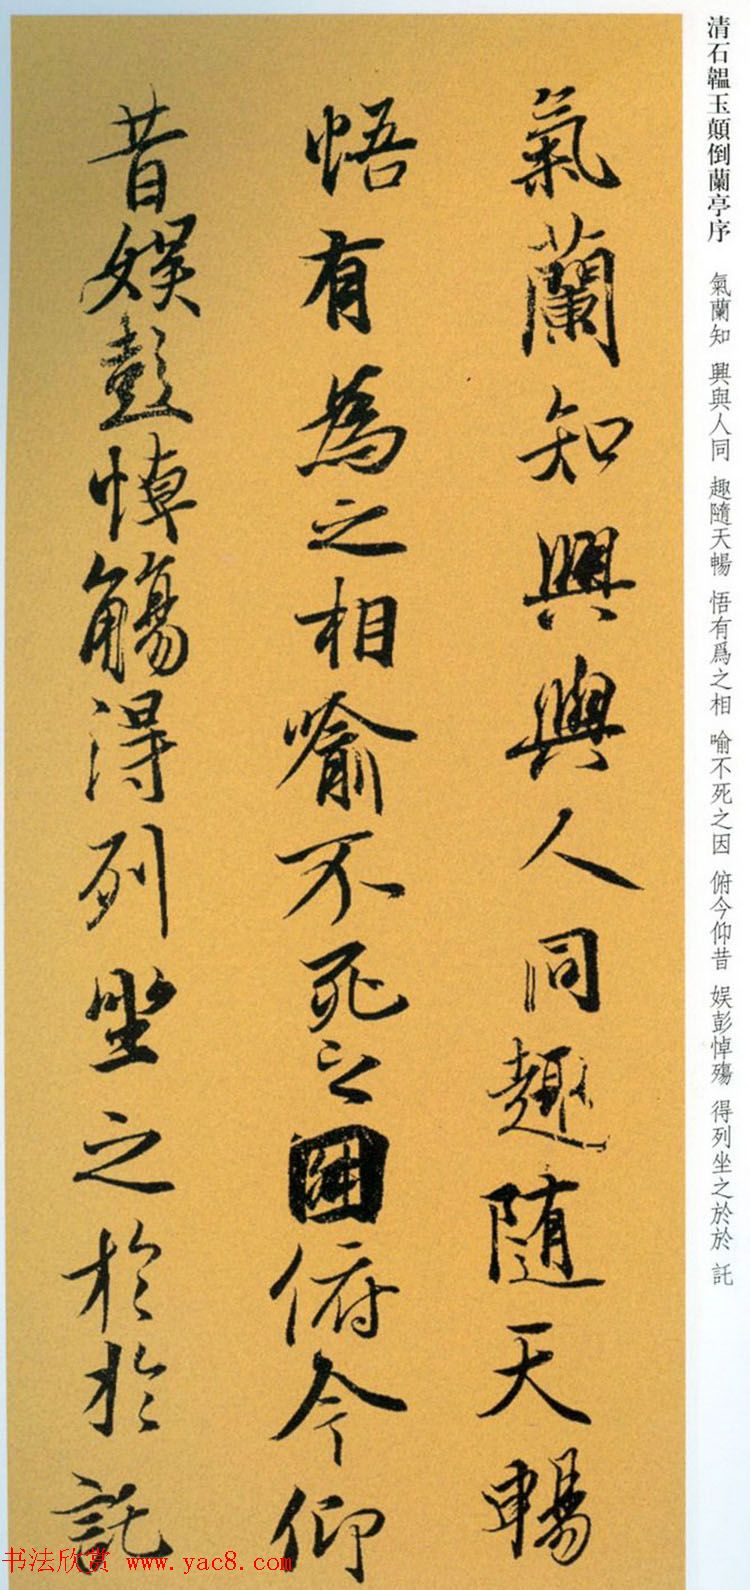 清石韞玉顛倒蘭亭序　氣蘭知　興與人同　趣隨天暢　悟有爲之相　喻不死之因　俯今仰昔　娱彭悼殤　得列坐之於於　託
氣蘭知興與人同趣隨天暢
悟有為之相喻不死之因俯今仰
昔娛彭悼觴得列坐之於於託
书法欣赏 www.yac8.com